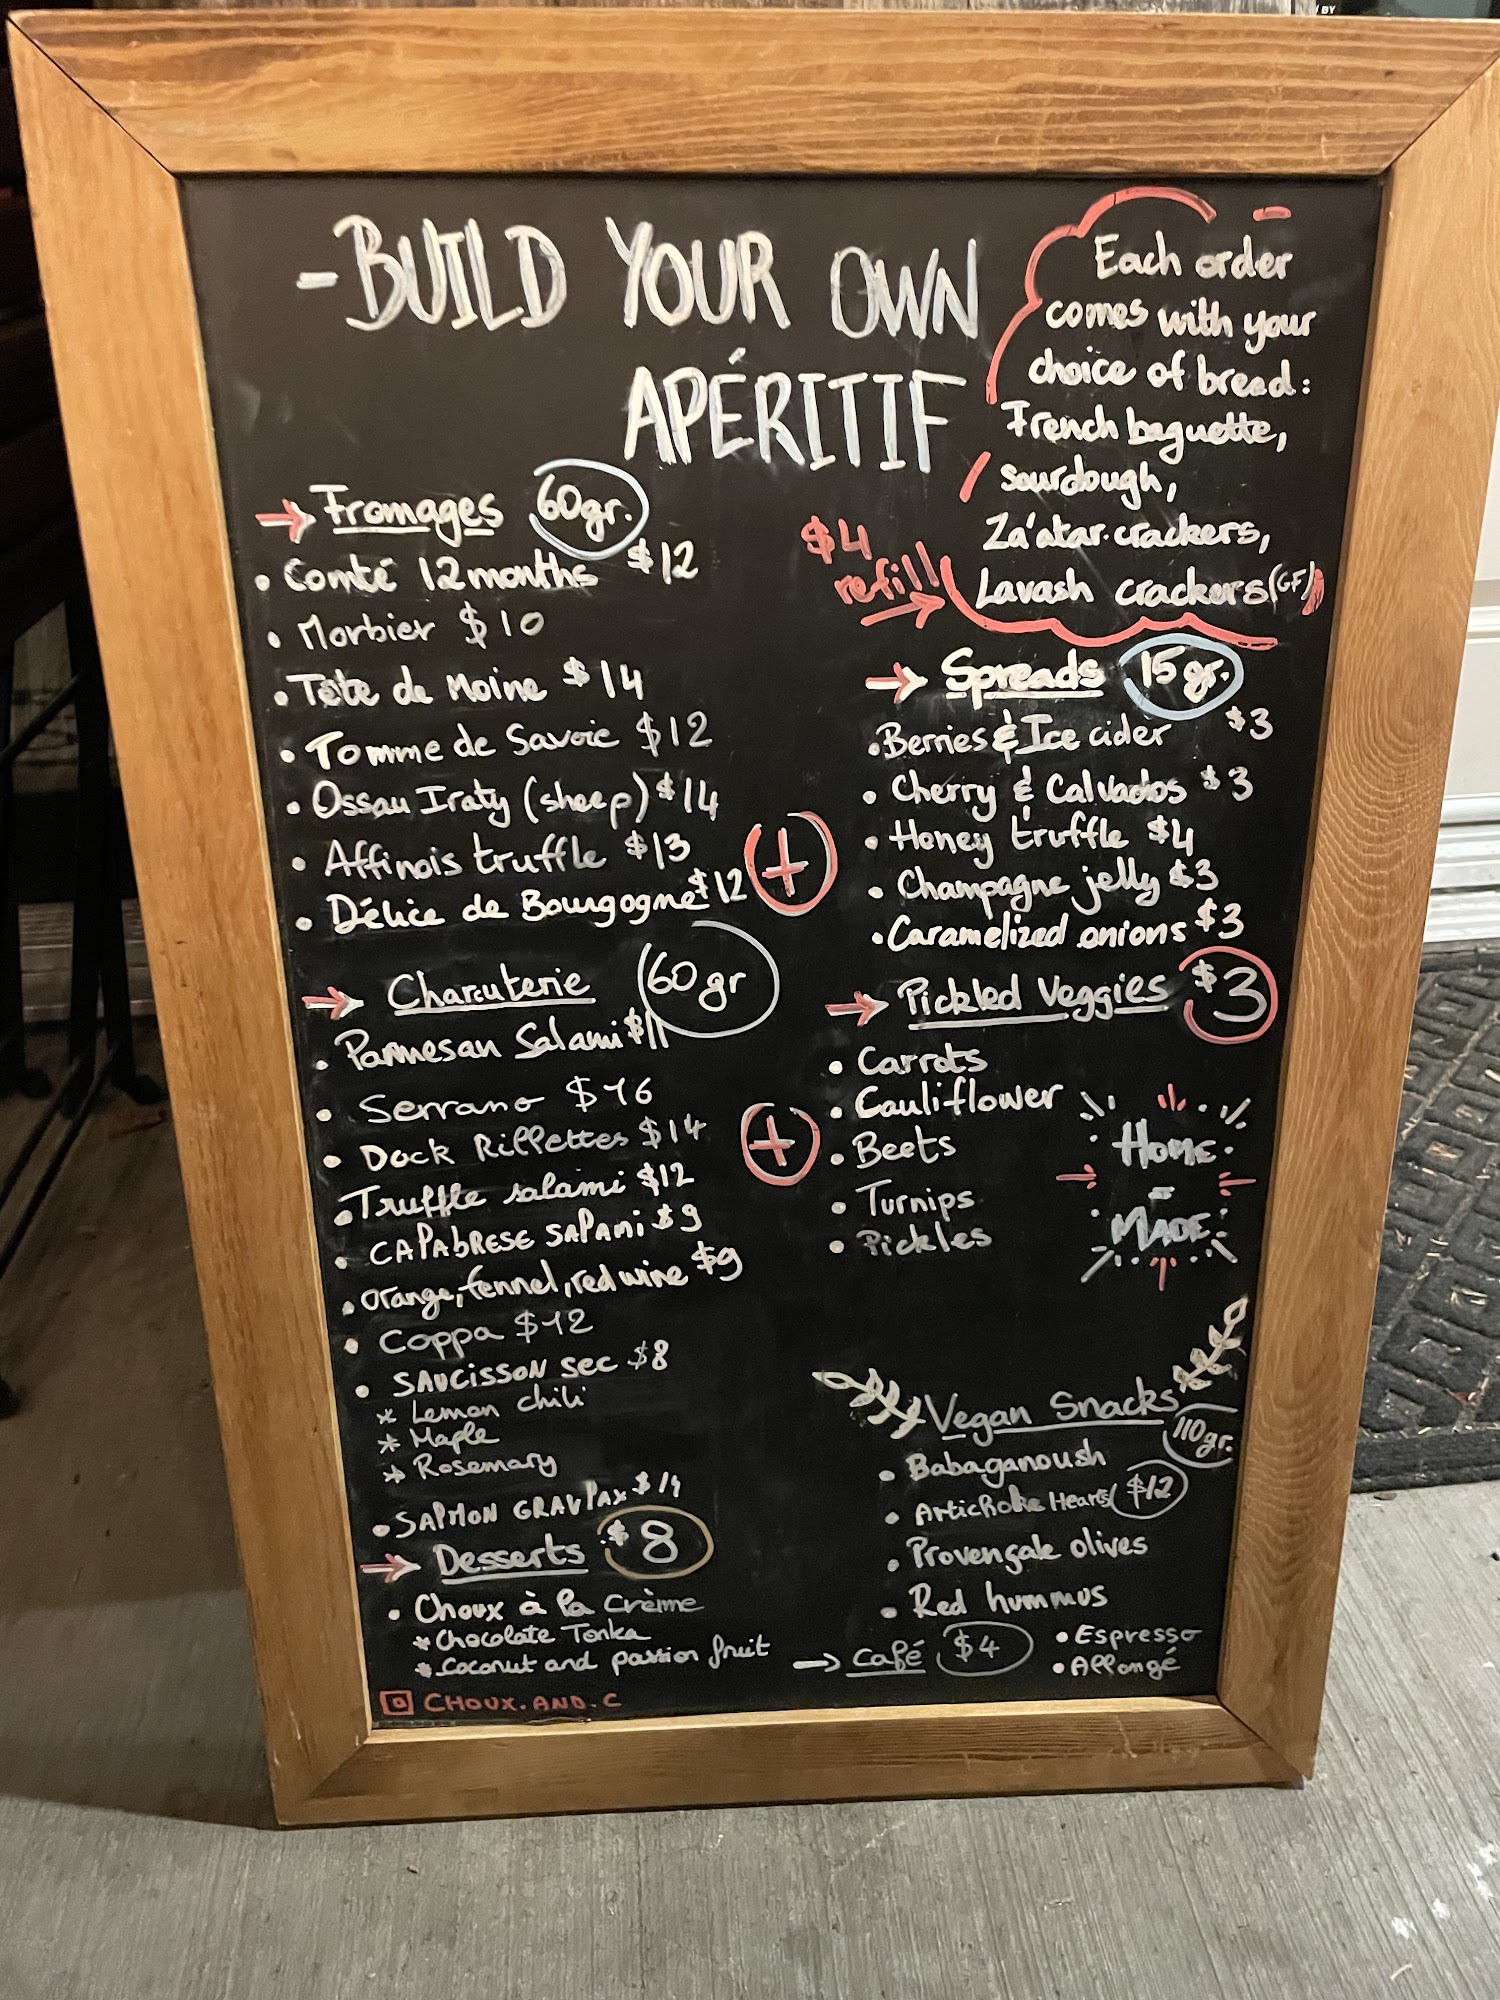 -BUILD YOUR OWN
APÉRITIF
Each order
comes with your
choice of bread:
French baguette,
sourdough,
Za'atar crackers,
Lavash crackers (GF)
$4
refill
→ Fromages 60gr.
• Comté 12 months $12
• Morbier $10
• Tête de Moine $14
• Tomme de Savoie $12
• Ossau Iraty (sheep) $14
• Affinois truffle $13
• Délice de Bourgogne $12
+
→ Charcuterie 60gr
• Parmesan Salami $11
• Serrano $16
• Duck Rillettes $14
• Truffle salami $12
• CALABRESE SALAMI $9
• Orange, fennel, red wine $9
• Coppa $12
• SAUCISSON SEC $8
* Lemon chili
* Maple
* Rosemary
• SALMON GRAVLAX $14
+
→ Desserts $8
• Choux à la crème
* Chocolate Tonka
* Coconut and passion fruit
CHOUX.AND.C
→ Spreads 15gr.
• Berries & Ice cider $3
• Cherry & Calvados $3
• Honey truffle $4
• Champagne jelly $3
• Caramelized onions $3
→ Pickled Veggies $3
• Carrots
• Cauliflower
• Beets
• Turnips
• Pickles
HOME
-
MADE
Vegan Snacks
110gr.
• Babaganoush
• Artichoke Hearts $12
• Provençale olives
• Red hummus
→ Café $4
• Espresso
• Allongé
BY